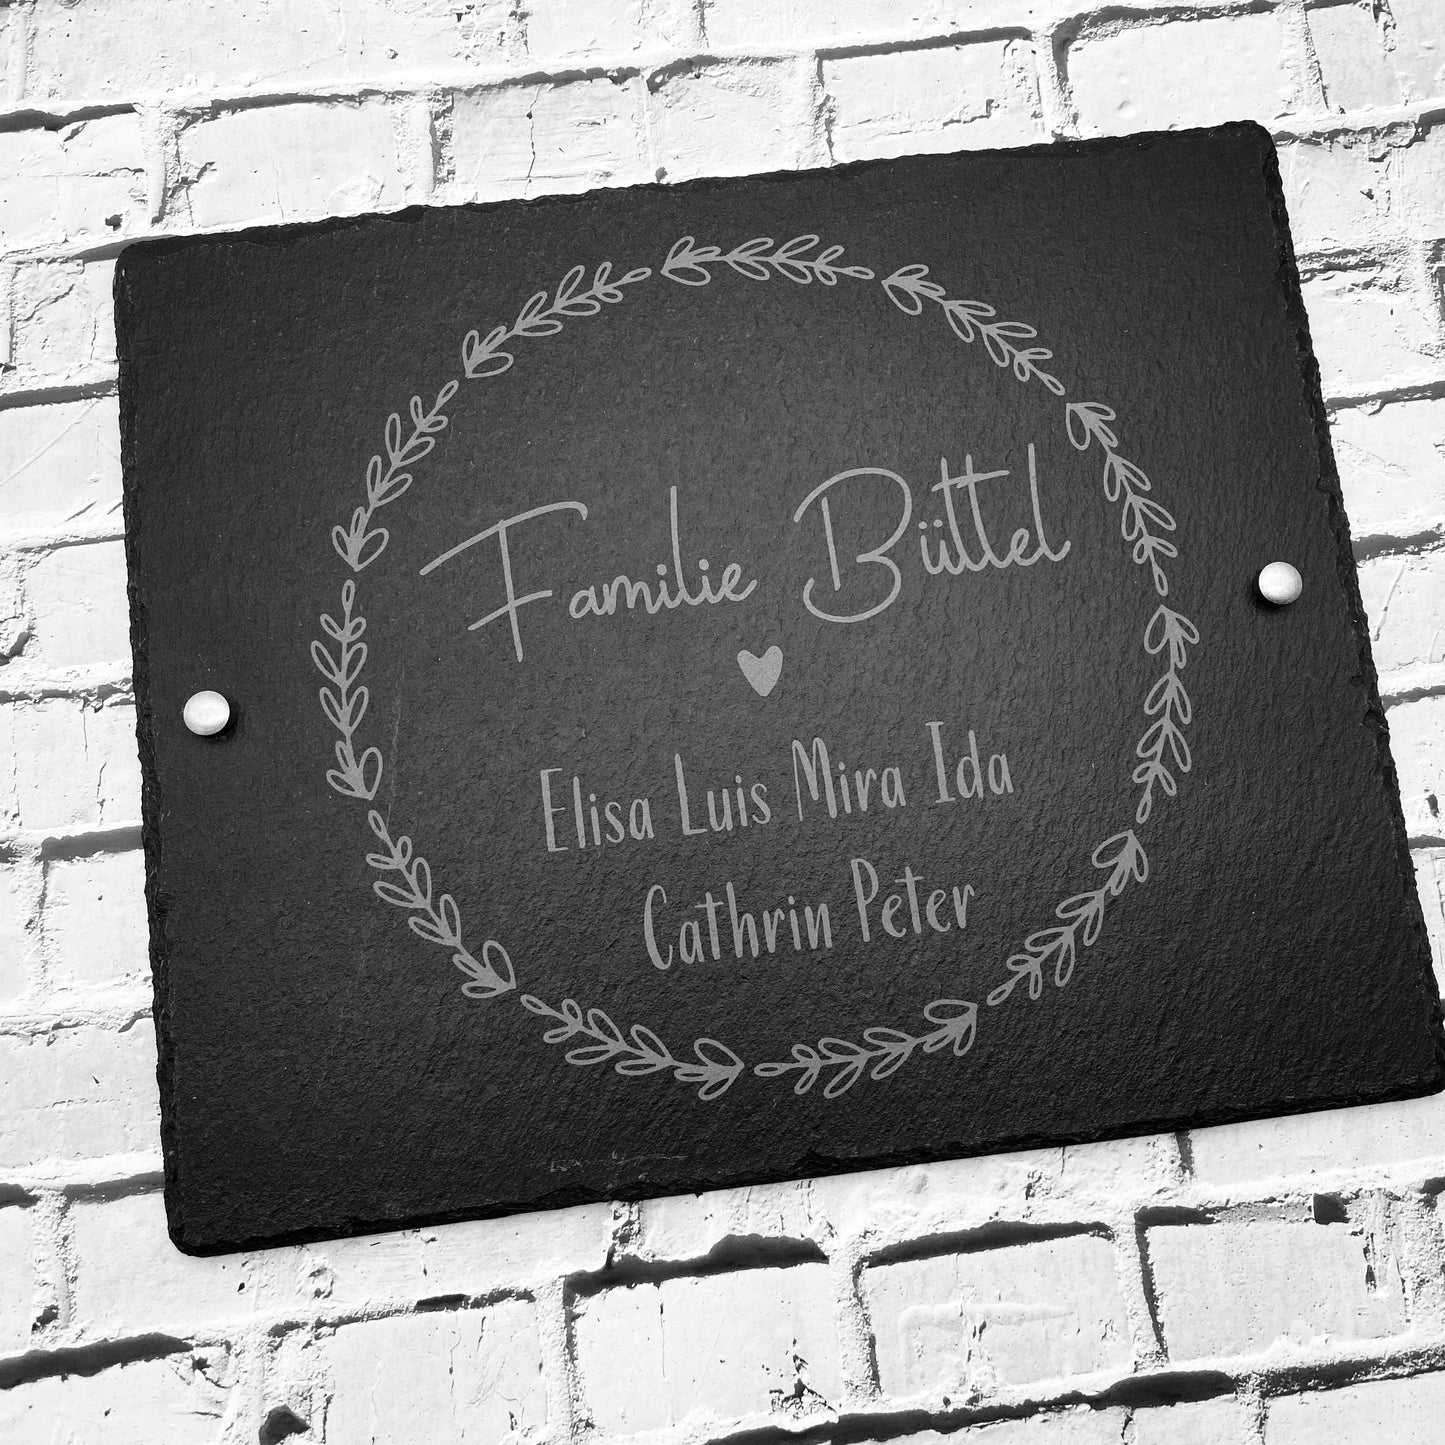 Familie Büttel
Elisa Luis Mira Ida
Cathrin Peter